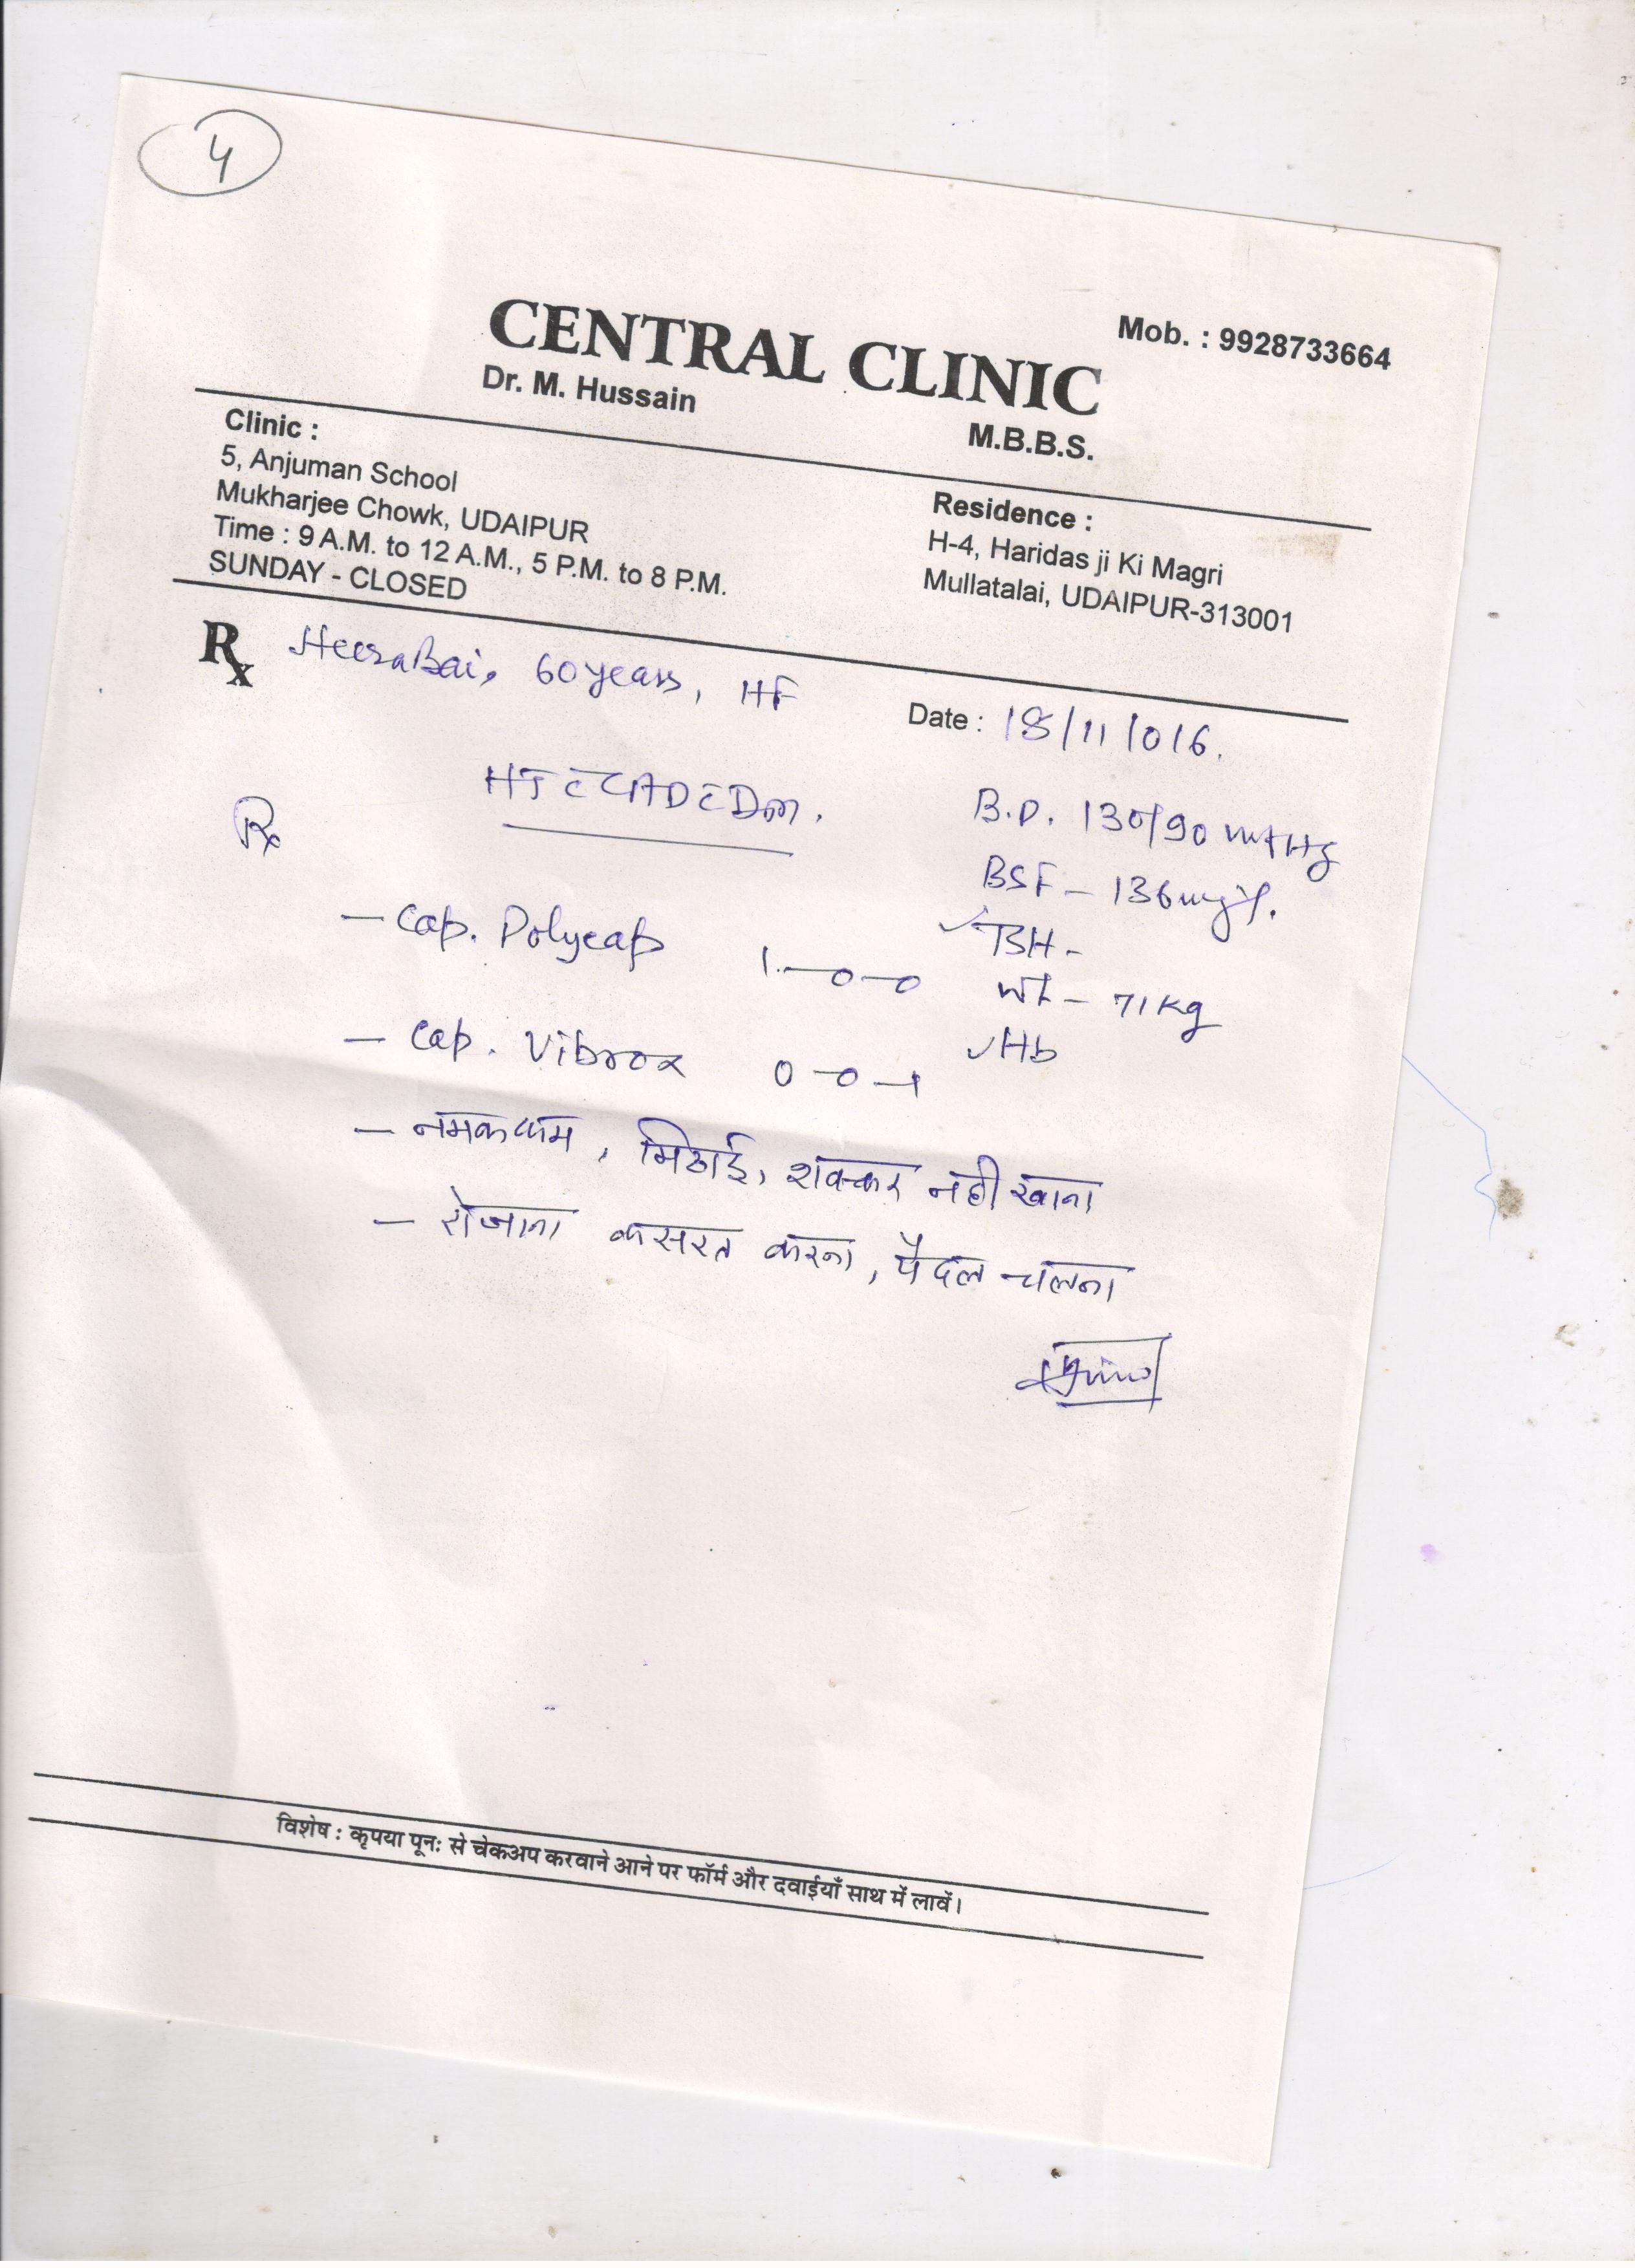 4
CENTRAL CLINIC
Mob. : 9928733664
Dr. M. Hussain
M.B.B.S.
Clinic :
5, Anjuman School
Mukharjee Chowk, UDAIPUR
Time : 9 A.M. to 12 A.M., 5 P.M. to 8 P.M.
SUNDAY - CLOSED
Residence :
H-4, Haridas ji Ki Magri
Mullatalai, UDAIPUR-313001
Rx HeeraBai, 60 years, HF
Date : 18/11/016.
HT c CAD c Dm.
Rx
B.P. 130/90 mtHg
BSF - 136mg%.
- Cap. Polycap 1-0-0
✓TSH -
Wt - 71Kg
- Cap. Vibrox 0-0-1
✓Hb
- नमक कम, मिठाई, शक्कर नही खाना
- रोजाना कसरत करना, पैदल चलना
विशेष : कृपया पूनः से चेकअप करवाने आने पर फॉर्म और दवाईयाँ साथ में लावें।